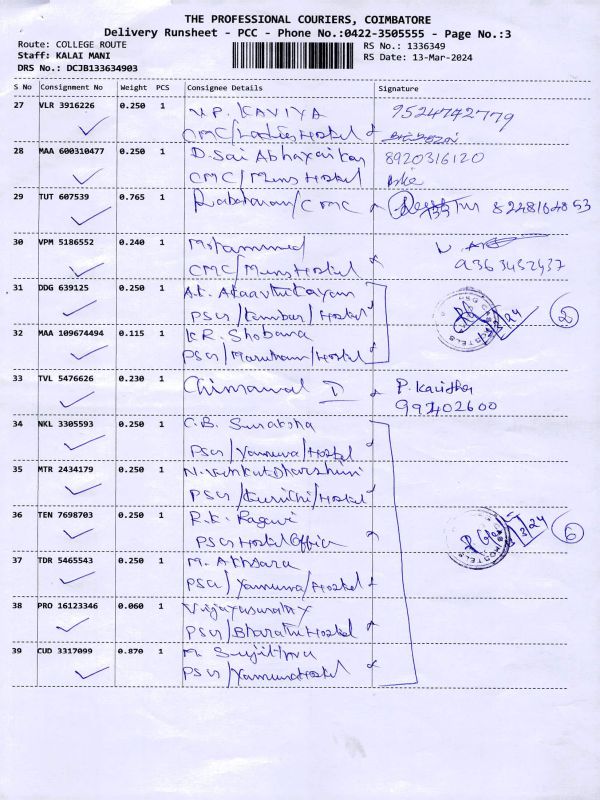 THE PROFESSIONAL COURIERS, COIMBATORE
Delivery Runsheet - PCC - Phone No.:0422-3505555 - Page No.:3
Route: COLLEGE ROUTE
RS No.: 1336349
Staff: KALAI MANI
RS Date: 13-Mar-2024
DRS No.: DCJB133634903
S No Consignment No Weight PCS Consignee Details Signature
27 VLR 3916226 0.250 1 V.P. KAVIYA 9524742779
CMC/Ladies Hostel
28 MAA 600310477 0.250 1 D. Sai 8920316120
CMC/Mens Hostel
29 TUT 607539 0.765 1 /CMC
30 VPM 5186552 0.240 1 Mohammed
CMC/Mens Hostel 9363452437
31 DDG 639125 0.250 1 A.K.
PSG/Kambar/Hostel 24 2
32 MAA 109674494 0.115 1 K.R. Shobana
PSG/Marutham/Hostel
33 TVL 5476626 0.230 1 P. Kavitha
99402600
34 NKL 3305593 0.250 1 C.B. Suraksha
PSG/Yamuna/Hostel
35 MTR 2434179 0.250 1 N. Venkat Dharshini
PSG/Kurinchi/Hostel
36 TEN 7698703 0.250 1 R.K. Ragavi
PSG Hostel Office 24 6
37 TDR 5465543 0.250 1 M. Akhsara
PSG/Yamuna/Hostel
38 PRO 16123346 0.060 1
PSG/Bharathi Hostel
39 CUD 3317099 0.870 1 M.
PSG/Yamuna Hostel